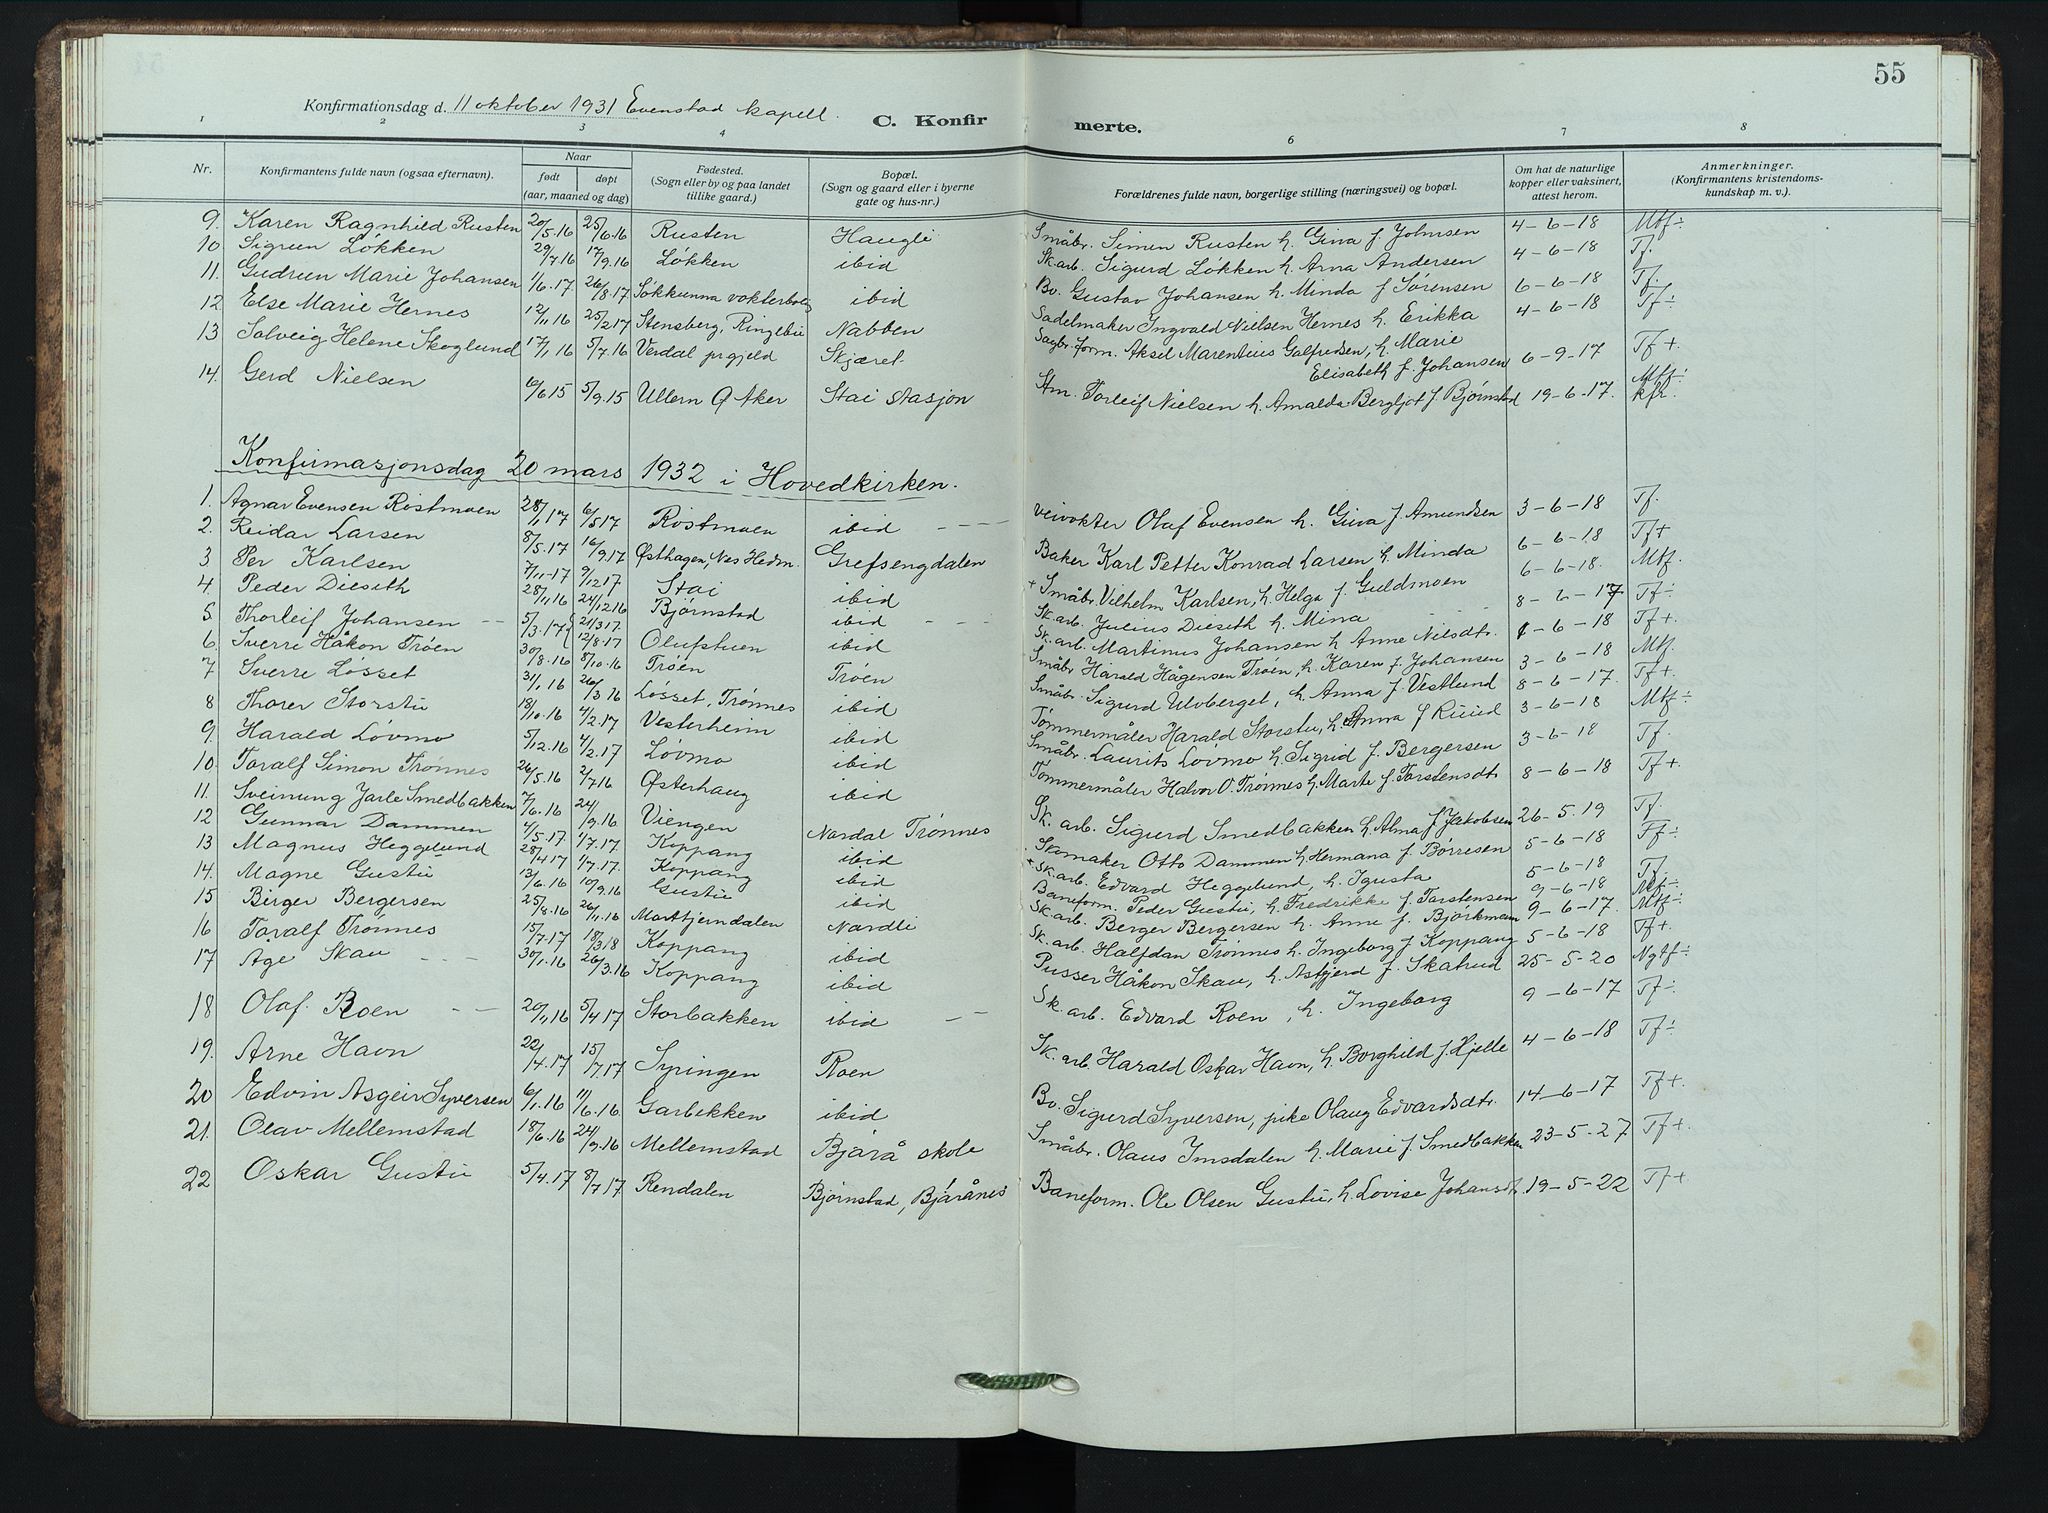 55
Konfirmationsdag d. 11 oktober 1931 Evenstad kapell.
C. Konfirmerte.
1 2 3 4 6 7 8
Nr. Konfirmantens fulde navn (ogsaa efternavn). Naar født døpt (aar, maaned og dag) Fødested. (Sogn eller by og paa landet tillike gaard.) Bopæl. (Sogn og gaard eller i byerne gate og hus-nr.) Forældrenes fulde navn, borgerlige stilling (næringsvei) og bopæl. Om hat de naturlige kopper eller vaksinert, attest herom. Anmerkninger. (Konfirmantens kristendomskundskap m. v.).
9. Karen Ragnhild Rusten 20/5.16 25/6.16 Rusten Haugli Småbr. Simen Rusten h. Gina f. Johnsen 4-6-18 Mtf÷
10 Sigrun Løkken 29/7.16 17/9.16 Løkken ibid Sk.arb. Sigurd Løkken h. Arna Andersen 4-6-18 Tf.
11. Gudrun Marie Johansen 1/6.17 26/8.17 Søkkunna vokterbolig ibid Bv. Gustav Johansen h. Minda f Sørensen 6-6-18 Tf.
12 Else Marie Hernes 12/11 16 25/2 17 Stensberg, Ringebu ibid Sadelmaker Ingvald Nielsen Hernes h. Erikka 4-6-18 Tf÷
13 Solveig Helene Skoglund 17/1 16 5/7.16 Verdal prgjeld Nabben Skjæret Sagbr.form. Aksel Marentius Galfredsen, h. Marie
Elisabeth f. Johansen 6-9-17 Tf+
14. Gerd Nielsen 6/6 15 5/9.15 Ullern Ø Aker Stai Stasjon Stm. Torleif Nielsen h. Amalda Bergljot f Bjørnstad 19-6-17. Mtf÷ kfr.
Konfirmasjonsdag 20 mars 1932 i Hovedkirken.
1. Agnar Evensen Rostmoen 28/1 17 6/5 17 Rostmoen ibid Veivokter Olaf Evensen h. Gina f. Amundsen 3-6-18 Tf.
2. Reidar Larsen 8/5.17 16/9.17 Østhagen, Nes Hedm. Grefsengdalen Baker Karl Petter Konrad Larsen h. Minda 6-6-18 Tf+
3 Per Karlsen 7/11-17 9/12 17 Stai ibid + Småbr. Vilhelm Karlsen, h. Helga f. Guldmoen 6-6-18. Mtf.
4. Peder Dieseth 28/11 16 24/12 16 Bjørnstad ibid Sk.arb. Julius Dieseth h. Mina 8-6-17 Tf÷
5. Thorleif Johansen 5/3.17 24/3 17. 12/8.17 Olufstuen ibid Sk.arb. Martinus Johansen h Anne Nilsdtr. 6-18 Tf+
6. Sverre Håkon Trøen 30/8.16 8/10.16 Trøen Trøen Småbr Harald Hågensen Trøen, h. Karen f. Johansen 3-6-18 Mtf.
7 Sverre Løsset 31/1 16 26/3 16 Løsset, Trønnes ibid Småbr. Sigurd Ulvberget, h. Anna f. Vestlund 8-6-17. Tf+
8 Thorer Storstu 18/10.16 4/2.17 Vesterheim ibid Tømmermåler Harald Storstu, h. Anna f Ruud 3-6-18 Mtf÷
9. Harald Løvmo 5/12.16 4/2.17 Løvmo ibid Småbr. Laurits Løvmo h. Sigrid f. Bergersen 3-6-18 Tf.
10. Toralf Simon Trønnes 26/5.16 2/7 16 Østerhaug ibid Tømmermåler Halvor O. Trønnes h. Marte f. Torstensdtr 8-6-18 Tf+
11. Sveinung Jarle Smedbakken 7/6.16 24/9.16 Viengen Nordal Trønnes Sk. arb. Sigurd Smedbakken h. Alma f. Jakobsen 26-5.19 Tf.
12 Gunnar Dammen 4/5.17 1/7.17. Koppang ibid Skomaker Otto Dammen h. Hermana f. Børresen 5-6-18 Tf÷
13. Magnus Heggelund 28/4 17 1/7.17. Koppang ibid + Sk.arb. Edvard Heggelund, h. Igusta 5-6-18 Tf.
14. Magne Gustu 13/6.16 10/9.16 Gustu ibid Baneform. Peder Gustu, h. Fredrikke f. Torstensen 9-6-18 Mf÷
15 Birger Bergersen 25/8.16 26/11.16 Mortfjerndalen Nordli Sk.arb. Berger Bergersen h. Anne f. Bjørkman 9-6-17. Mtf÷
16 Toralf Trønnes 15/7.17 18/3 18 Koppang ibid Sk.arb. Halfdan Trønnes h. Ingeborg f Koppang 5-6-18 Tf+
17 Åge Skau 30/1.16 26/3.16 Koppang ibid Pusser Håkon Skau, h. Asfjerd f. Skatrud 25-5-20 Ngtf÷
18 Olaf. Roen 20/11 16 5/4 17 Storbakken ibid Sk. arb. Edvard Roen, h. Ingeborg 9-6-17 Tf÷
19. Arne Havn 22/4.17 15/7.17 Syringen Roen Sk. arb. Harald Oskar Havn, h. Borghild f. Hjelle 4-6-18 Tf÷
20 Edvin Asgeir Syversen 6/1.16 11/6.16. Garbekken ibid Bv. Sigurd Syversen, pike Olaug Edvardsdtr. 14-6-17 Tf+.
21. Olav Mellemstad 18/6.16 24/9.16 Mellemstad Bjørå skole Småbr. Olaus Imsdalen h. Marie f Smedbakken 23-5-27. Tf+.
22 Oskar Gustu 5/4.17 8/7 17 Rendalen Bjørnstad, Bjørånes Baneform. Ole Olsen Gustu, h Lovise Johansdt. 19-5-22 Tf+